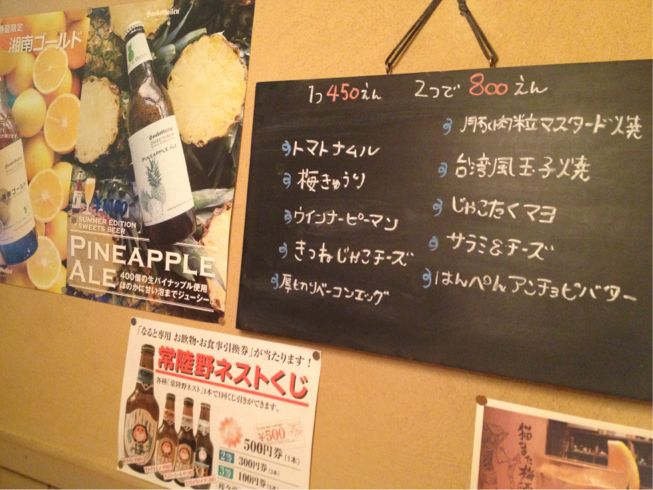 湘南ゴールド
PINEAPPLE ALE
SUMMER EDITION
SWEETS BEER
PINEAPPLE
ALE
400個の生パイナップル使用
ほのかに甘い泡までジューシー
1つ450えん 2つで800えん
トマトナムル
梅きゅうり
ウインナーピーマン
きつねじゃこチーズ
厚切りベーコンエッグ
豚肉粒マスタード焼
台湾風玉子焼
じゃこたくマヨ
サラミ&チーズ
はんぺんアンチョビバター
「なると専用 お飲物・お食事引換券」が当たります!
常陸野ネストくじ
各種「常陸野ネスト」1本で1回くじ引きができます。
¥500
500円券(1本)
2等 300円券(2本)
3等 100円券